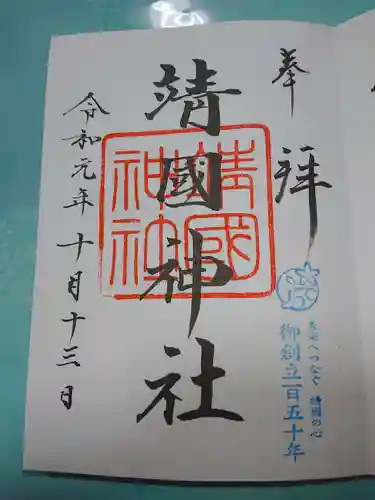 奉拝
150
未来へつなぐ 靖國の心
御創立百五十年
靖國神社
靖國神社
令和元年十月十三日